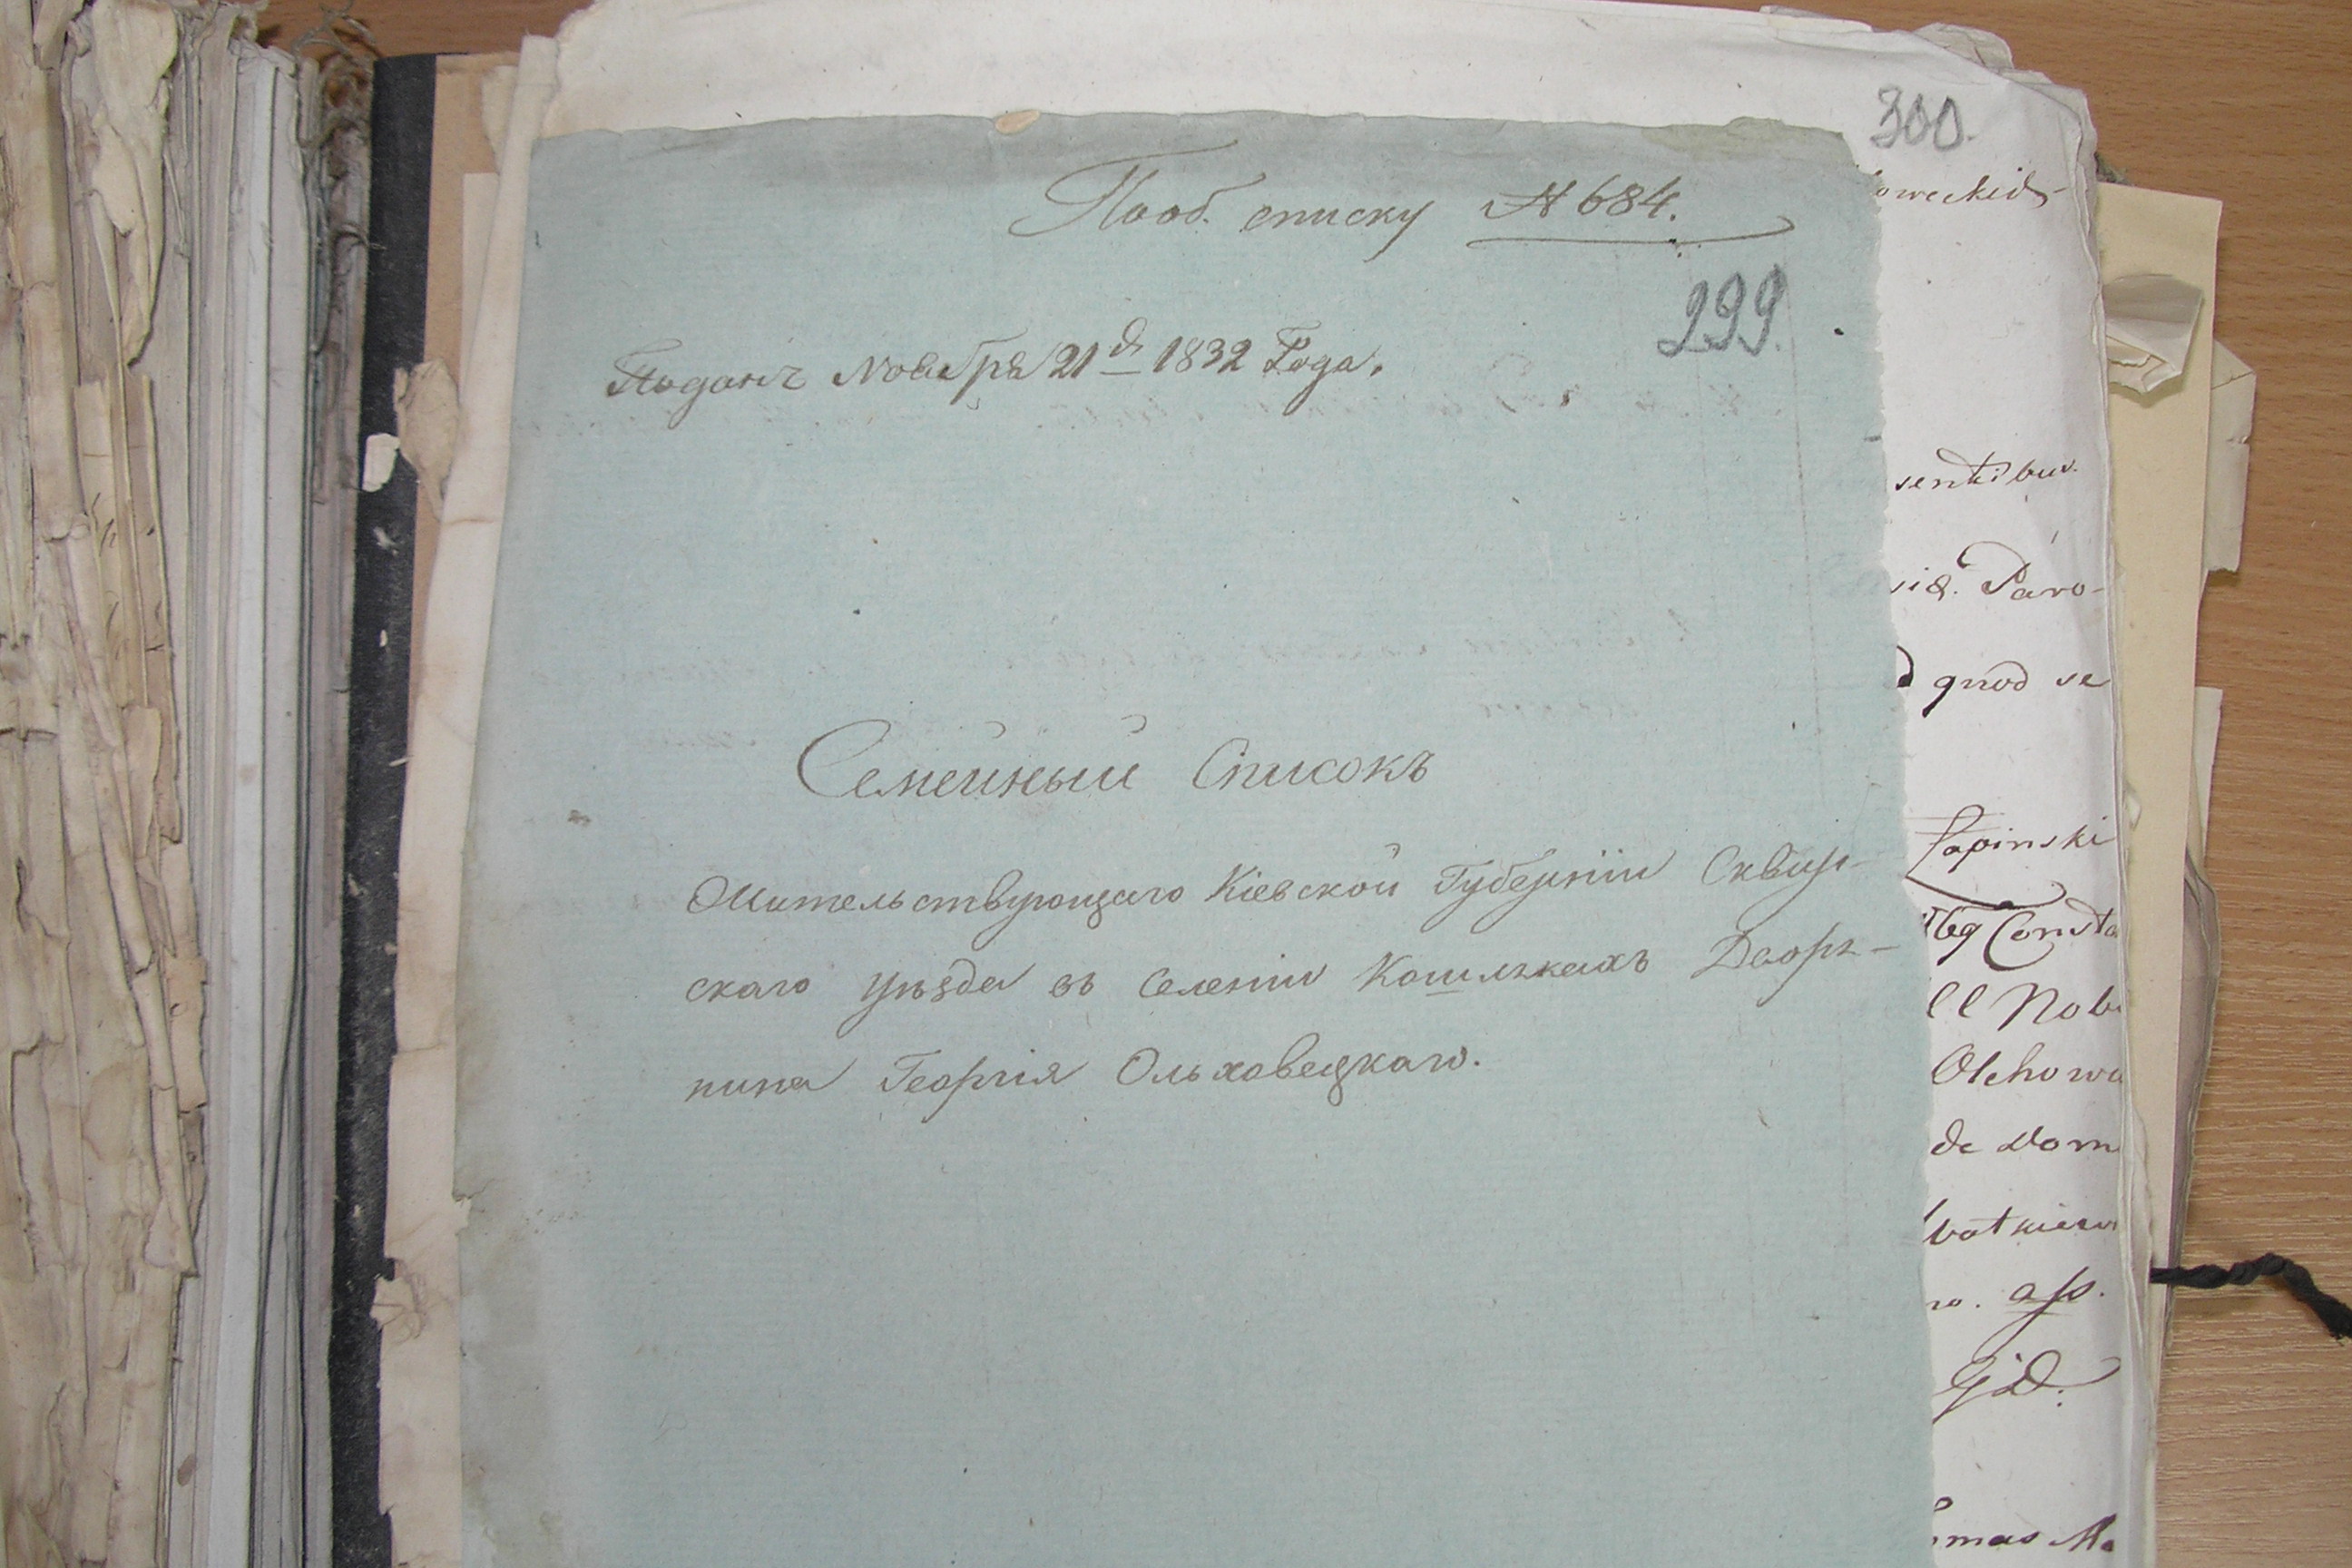 По об. списку № 684.
299.
Поданъ Ноября 21 д 1832 Года.
Семейный Списокъ
Жительствующаго Кіевской Губерніи Сквир-
скаго уѣзда въ селеніи Кошлякахъ Дворя-
нина Георгія Ольховецкаго.
300.
oweckich
sentibus
Paro-
quod se
Łapinski
Consta
ll Nob
Olchowe
de Dom